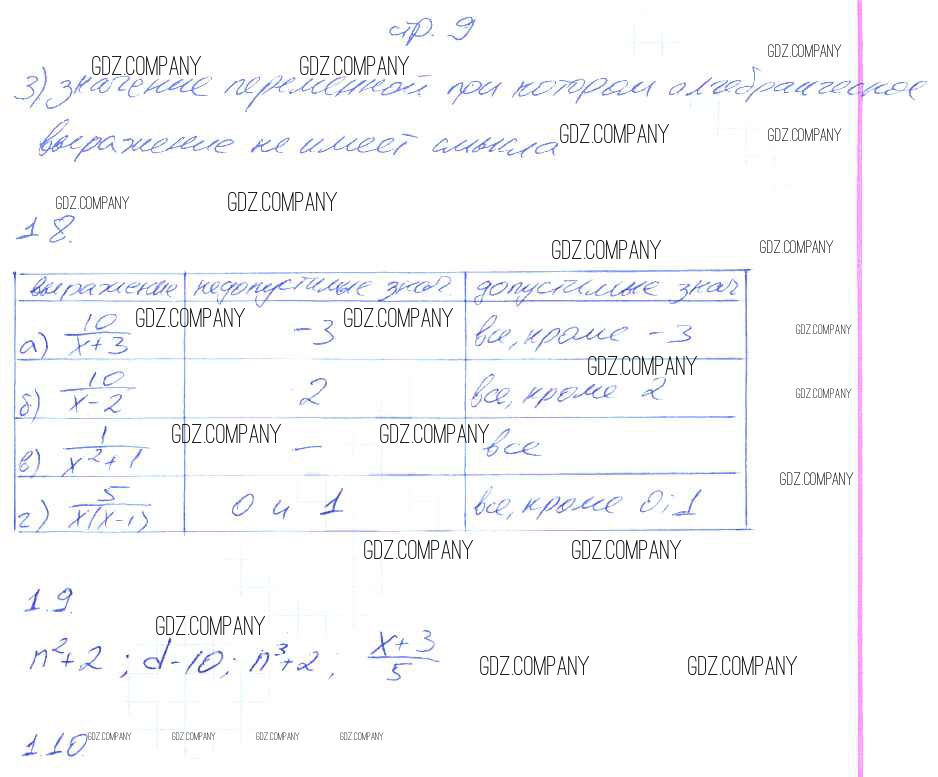 стр. 9
GDZ.COMPANY GDZ.COMPANY GDZ.COMPANY
3) значение переменной при котором алгебраическое
выражение не имеет смысла GDZ.COMPANY GDZ.COMPANY
GDZ.COMPANY GDZ.COMPANY
1.8.
GDZ.COMPANY GDZ.COMPANY
выражение недопустимые знач. допустимые знач
а) 10/x+3 GDZ.COMPANY -3 GDZ.COMPANY все, кроме -3 GDZ.COMPANY
GDZ.COMPANY
б) 10/x-2 2 все, кроме 2 GDZ.COMPANY
в) 1/x²+1 GDZ.COMPANY — GDZ.COMPANY все
GDZ.COMPANY
г) 5/x(x-1) 0 и 1 все, кроме 0; 1
GDZ.COMPANY GDZ.COMPANY
1.9.
GDZ.COMPANY
n²+2 ; d-10; n³+2 ; x+3/5 GDZ.COMPANY GDZ.COMPANY
1.10 GDZ.COMPANY GDZ.COMPANY GDZ.COMPANY GDZ.COMPANY